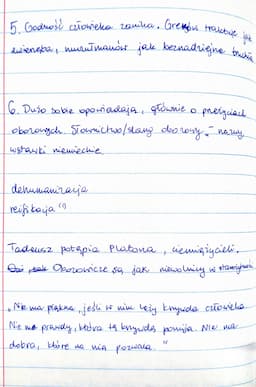 5. Godność człowieka zanika. Greków traktuje jak
zwierzęta, muzułmanów jak beznadziejne
6. Dużo sobie opowiadają, głównie o przeżyciach
obozowych. Słownictwo/slang obozowy - nazwy
wstawki niemieckie.
dehumanizacja
reifikacja (!)
Tadeusz potępia Platona, ciemiężycieli.
Obozowicze są jak niewolnicy w starożytności
"Nie ma piękna, jeśli w nim leży krzywda człowieka.
Nie ma prawdy, która tą krzywdę pomija. Nie ma
dobra, które na nią pozwala."